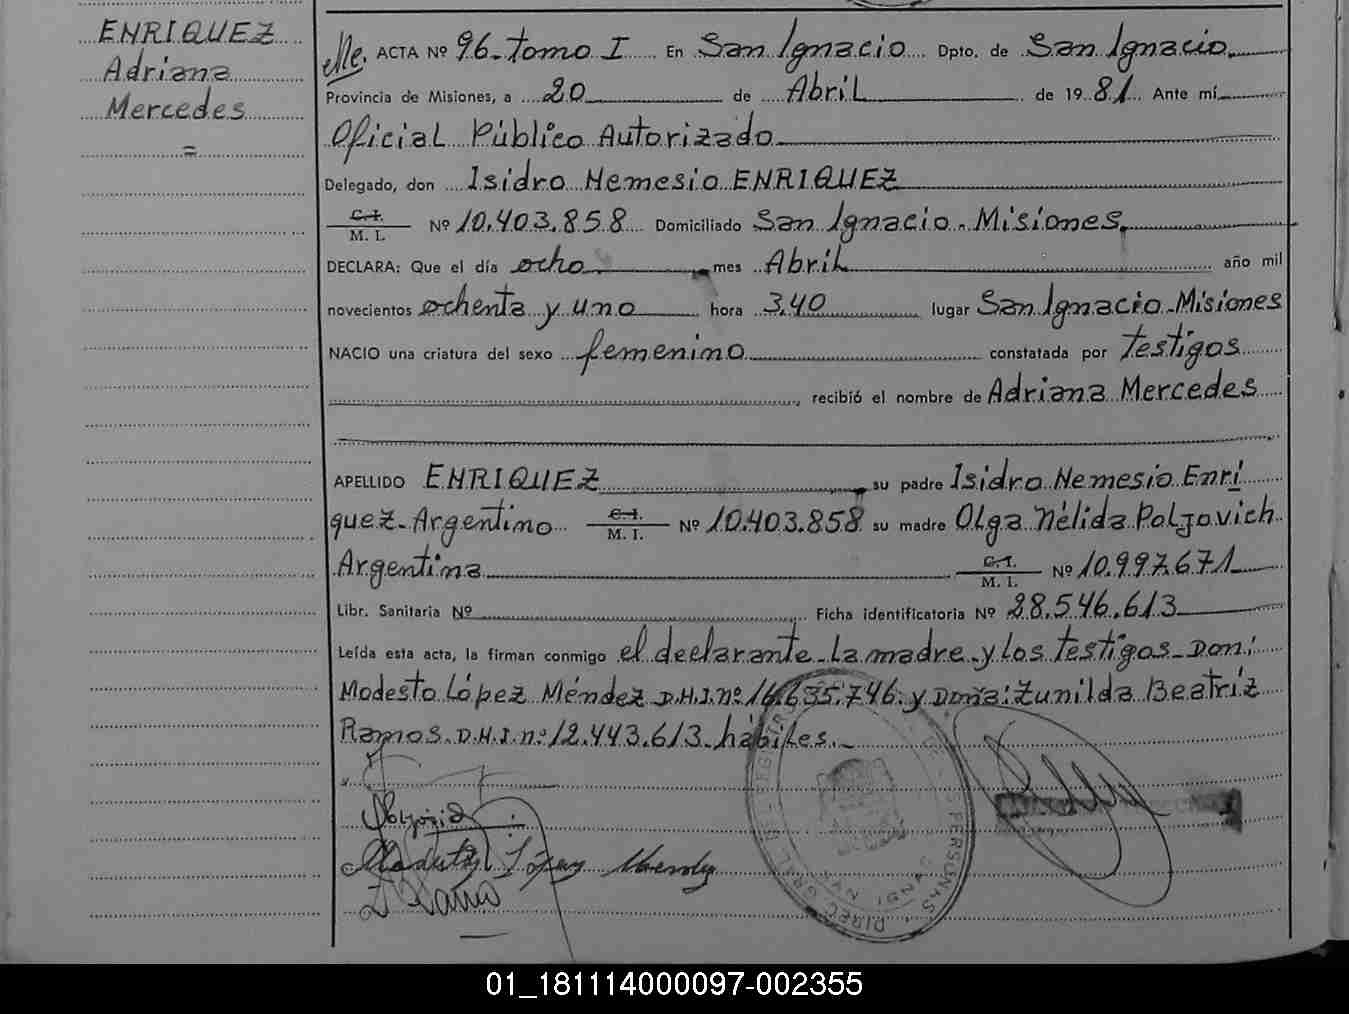 ENRIQUEZ
Adriana
Mercedes
=
ACTA Nº 96. tomo I En San Ignacio Dpto. de San Ignacio.
Provincia de Misiones, a 20 de Abril de 1981 Ante mí
Oficial Público Autorizado
Delegado, don Isidro Nemesio ENRIQUEZ
C.I. / M. I. Nº 10.403.858 Domiciliado San Ignacio. Misiones.
DECLARA: Que el día ocho mes Abril año mil
novecientos ochenta y uno hora 3,40 lugar San Ignacio. Misiones
NACIO una criatura del sexo femenino constatada por testigos
, recibió el nombre de Adriana Mercedes
APELLIDO ENRIQUEZ su padre Isidro Nemesio Enri
quez. Argentino C.I. / M. I. Nº 10.403.858 su madre Olga Nélida Poljovich
Argentina C.I. / M. I. Nº 10.997.671
Libr. Sanitaria Nº Ficha identificatoria Nº 28.546.613
Leída esta acta, la firman conmigo el declarante. La madre. y Los testigos. Don:
Modesto López Méndez D.N.I. nº 16.635.746. y Doña: Zunilda Beatríz
Ramos. D.N.I. nº 12.443.613. hábiles.
López Mendez
Z Ramos
DIREC. GRAL DEL REG PERSONAS
01_181114000097-002355